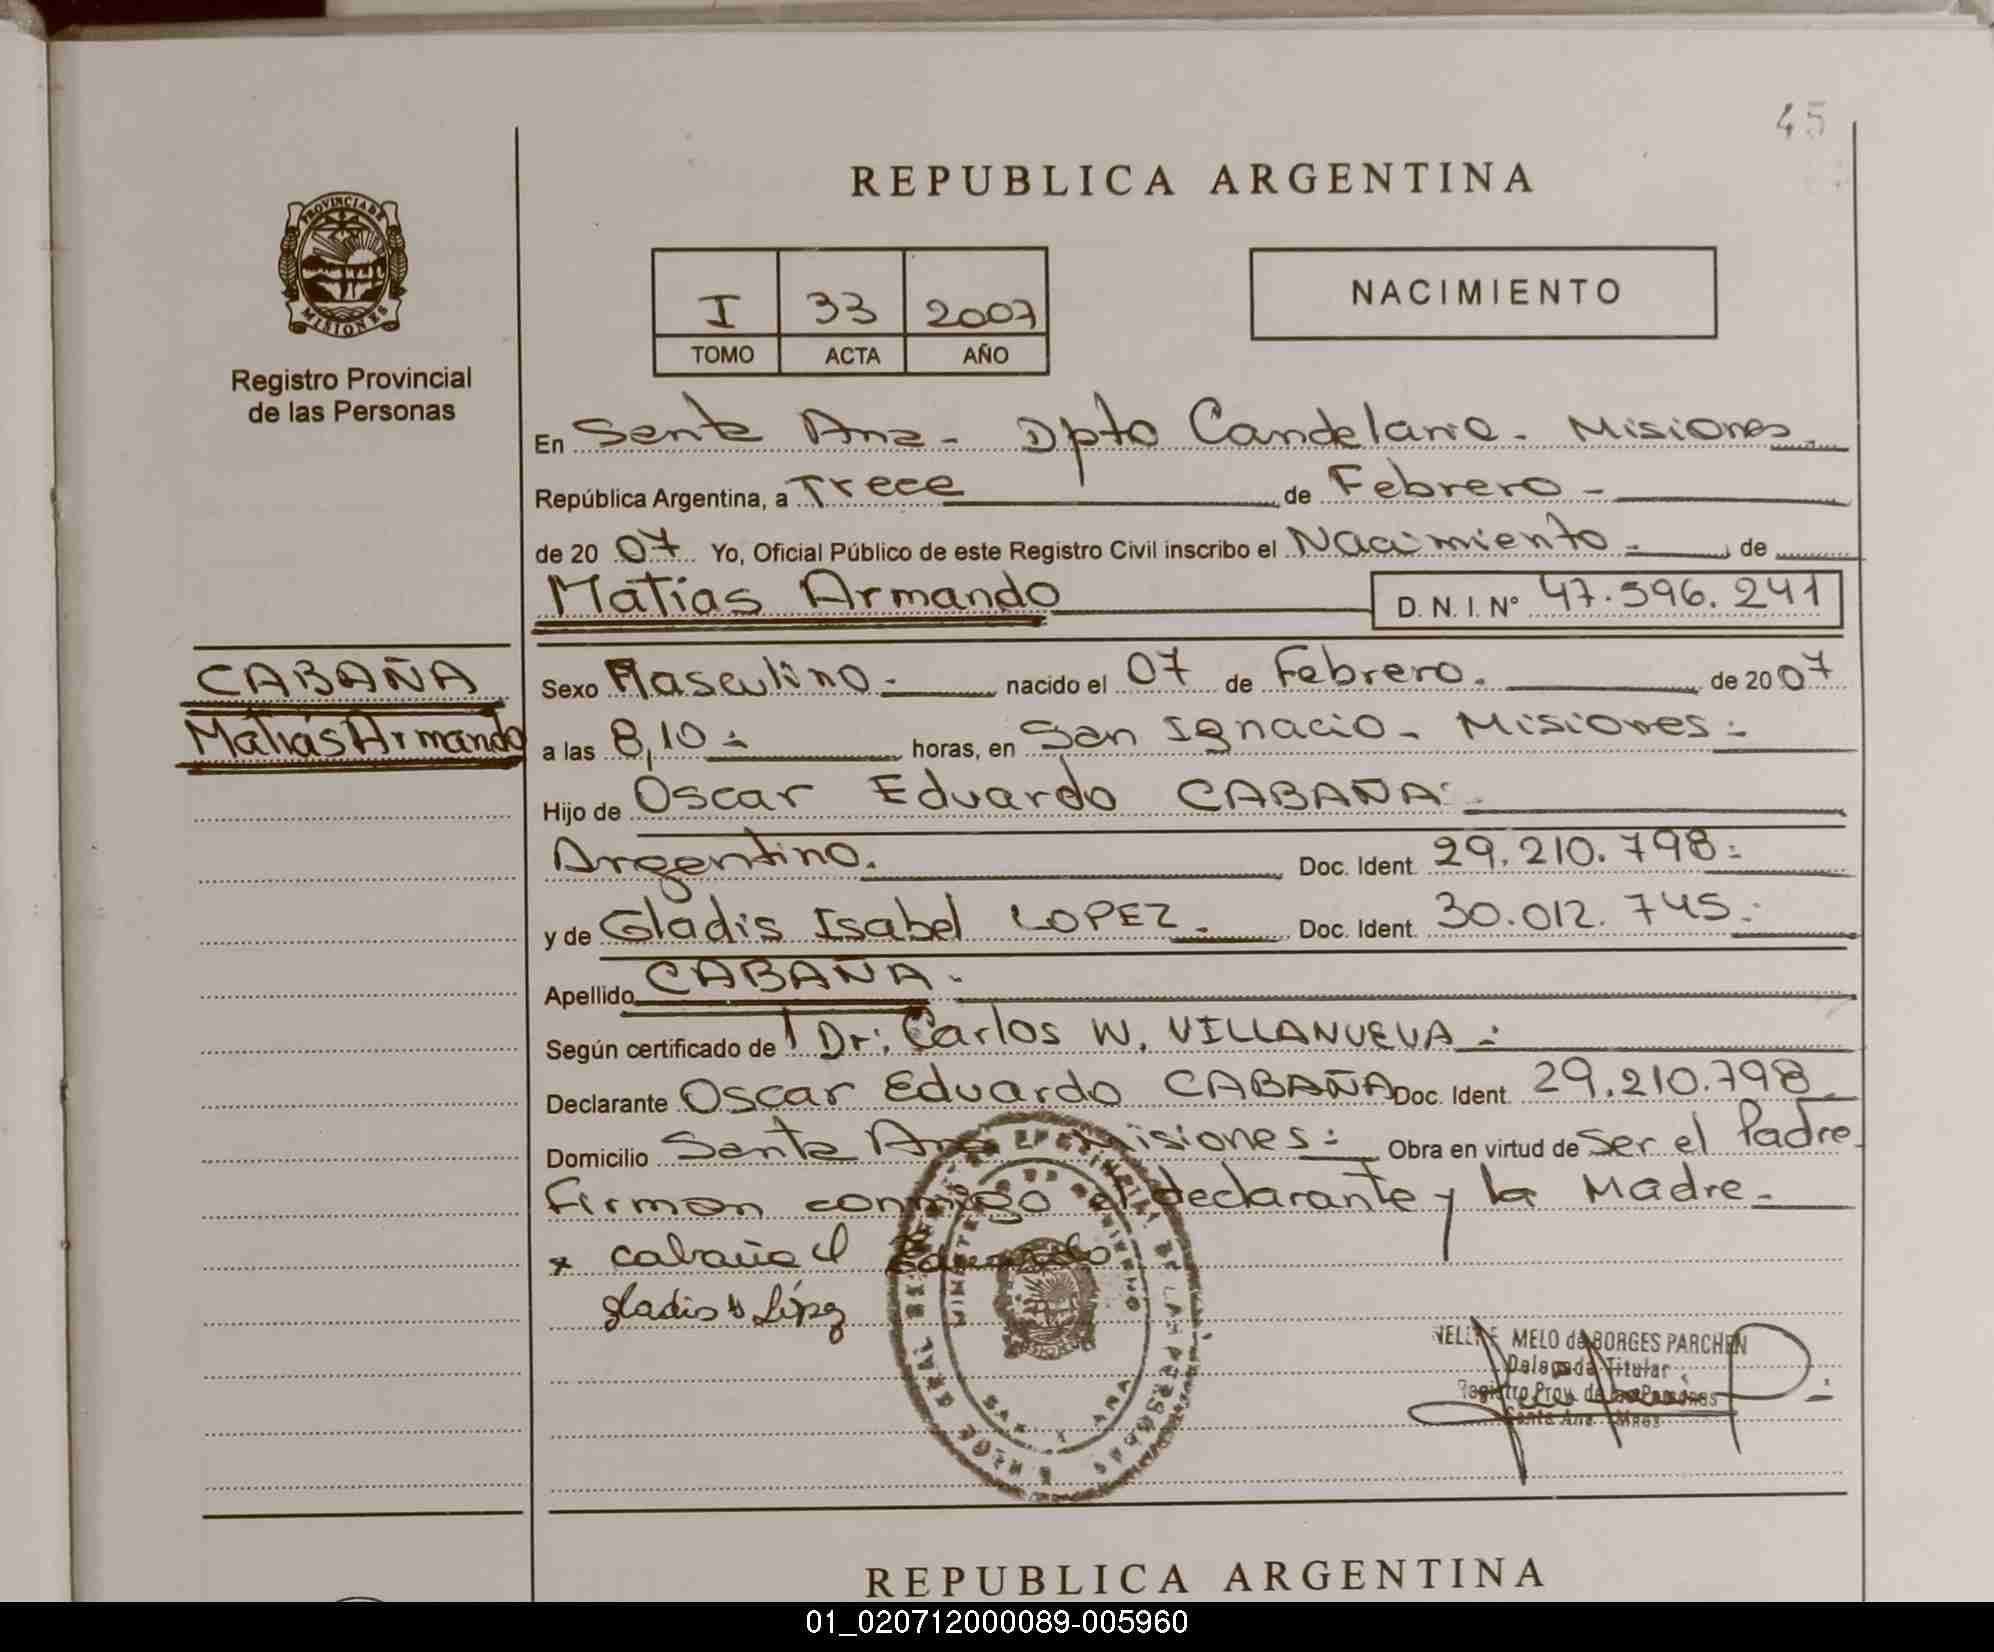 45
REPUBLICA ARGENTINA
PROVINCIA DE
MISIONES
Registro Provincial
de las Personas
I 33 2007
TOMO ACTA AÑO
NACIMIENTO
En Santa Ana - Dpto Candelaria - Misiones
República Argentina, a Trece de Febrero -
de 20 07 Yo, Oficial Público de este Registro Civil inscribo el Nacimiento - de
Matias Armando D. N. I. Nº 47.596.241
CABAÑA
Matías Armando
Sexo Masculino - nacido el 07 de Febrero. de 20 07
a las 8,10 - horas, en San Ignacio - Misiones -
Hijo de Oscar Eduardo CABAÑA -
Argentino. Doc. Ident. 29.210.798 -
y de Gladis Isabel LOPEZ. Doc. Ident. 30.012.745 -
Apellido CABAÑA -
Según certificado de Dr: Carlos W. VILLANUEVA -
Declarante Oscar Eduardo CABAÑA Doc. Ident. 29.210.798
Domicilio Santa Ana Misiones - Obra en virtud de Ser el Padre
Firman conmigo el declarante y la Madre -
x cabaña Eduardo
gladis López
MELO de BORGES PARCHEN
Delegada Titular
Registro Prov. de las Personas
Santa Ana - Mnes
REPUBLICA ARGENTINA
01_020712000089-005960